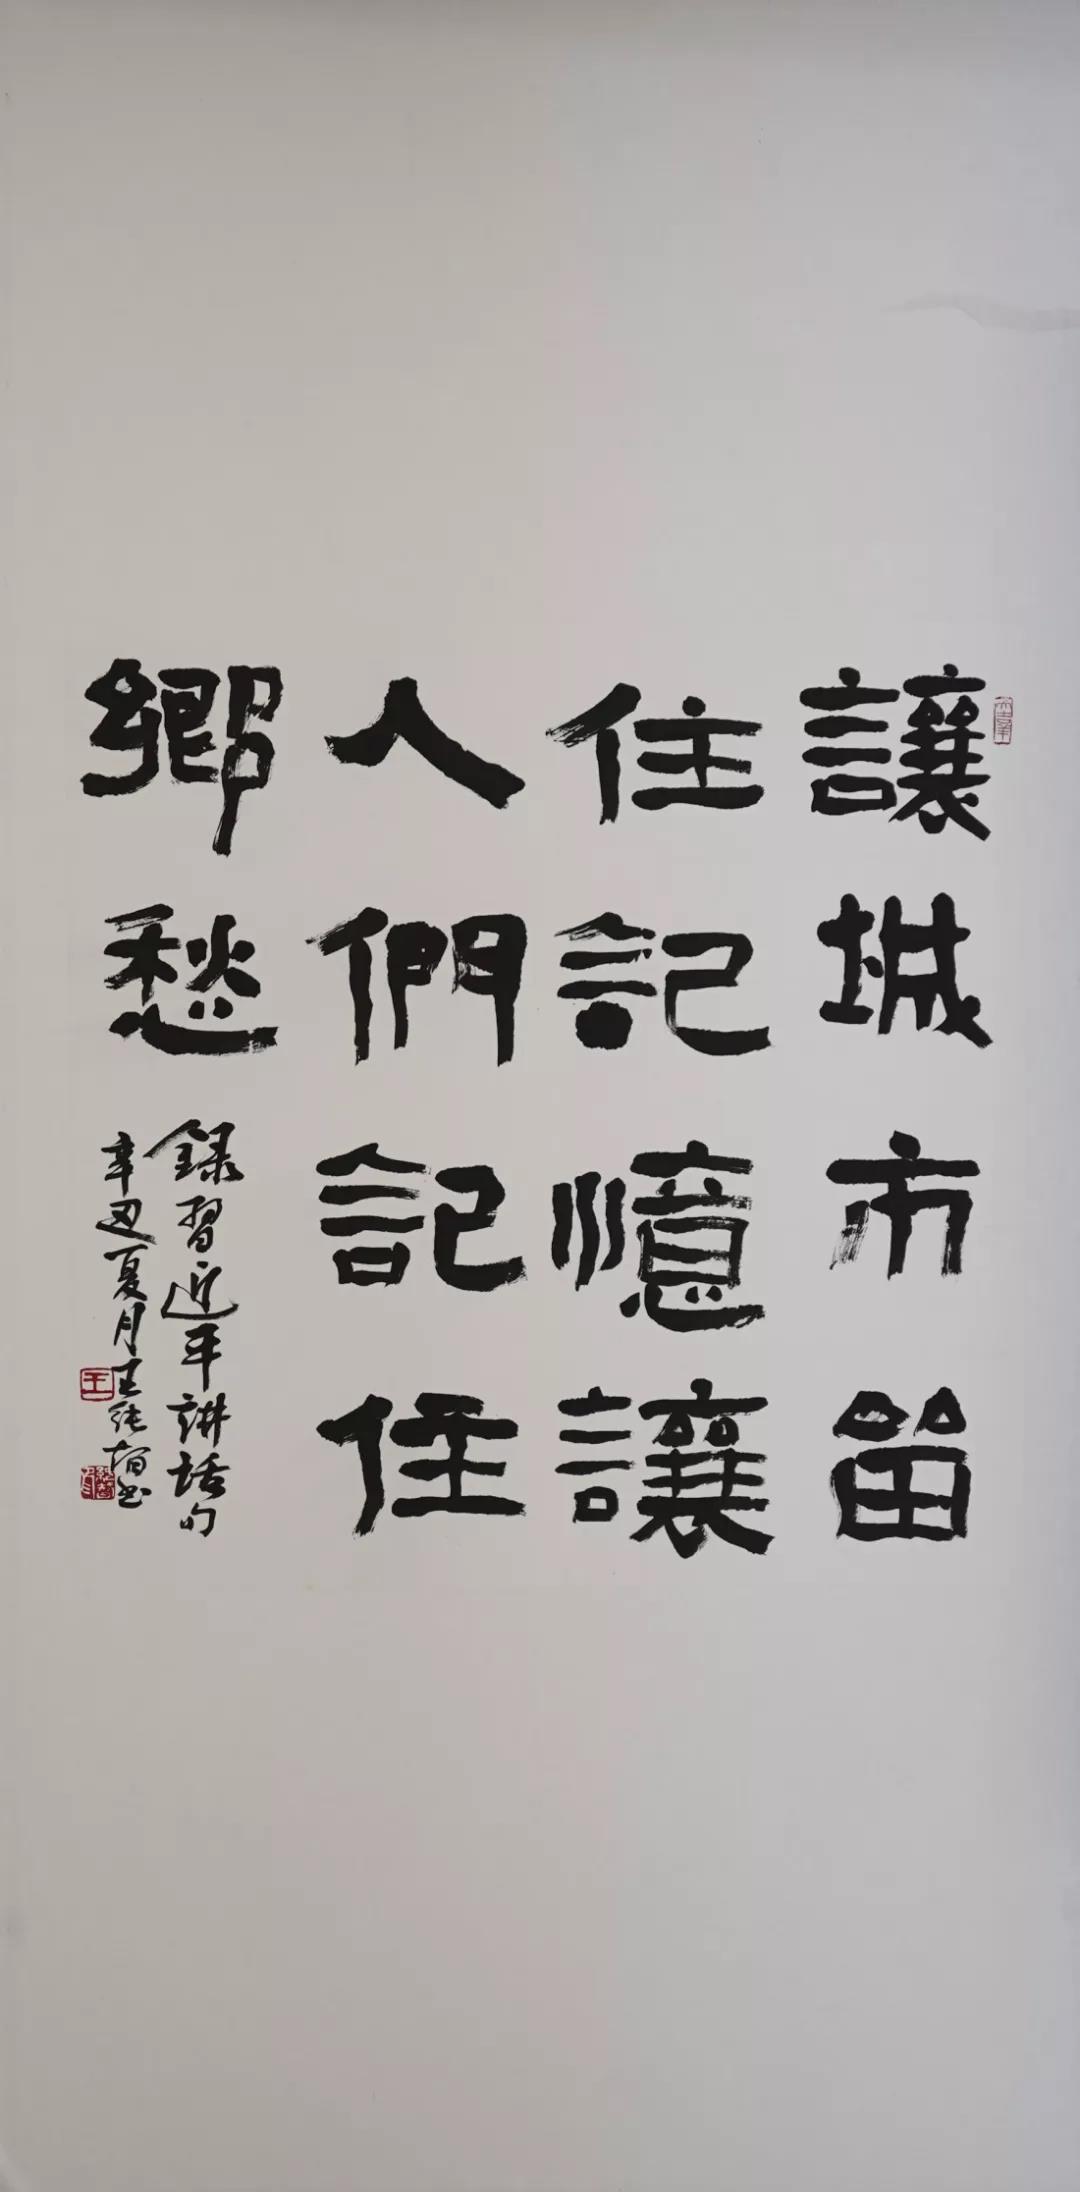 讓城市留
住記憶讓
人們記住
鄉愁
錄習近平講話句
辛丑夏月王純智书
王